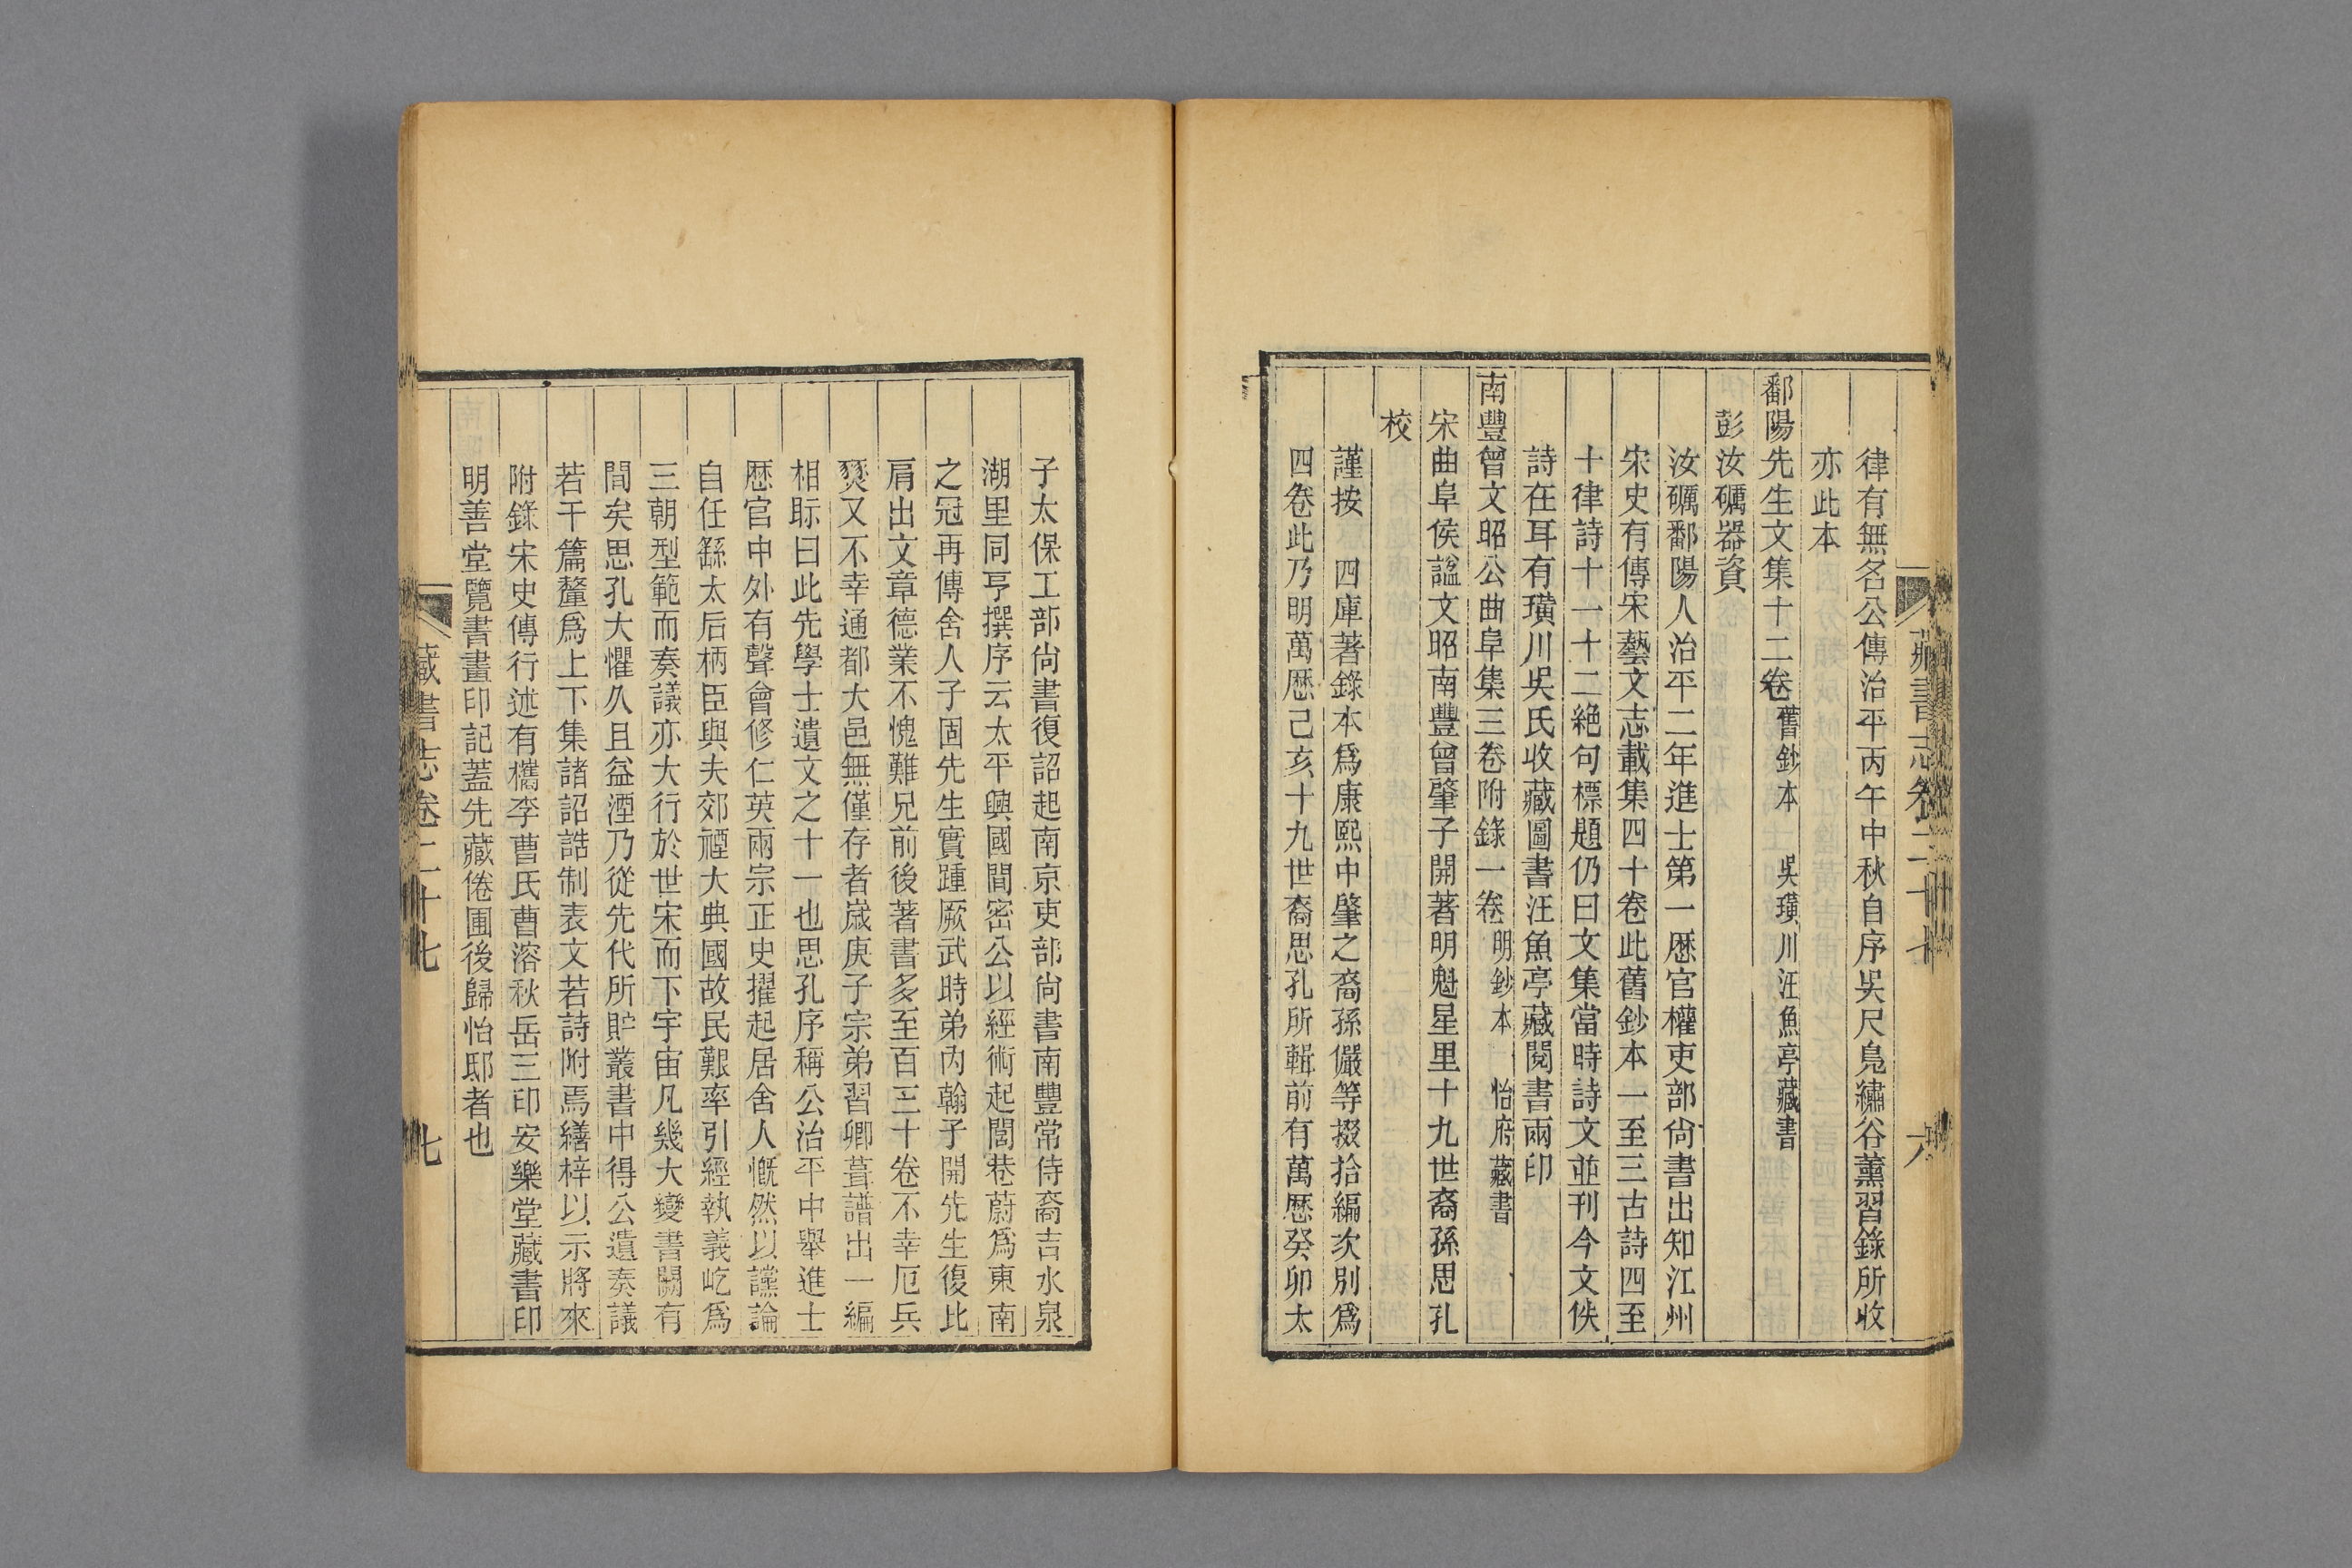 律有無名公傳治平丙午中秋自序吳尺鳧繡谷薰習錄所收
亦此本
鄱陽先生文集十二卷舊鈔本 吳璜川汪魚亭藏書
彭汝礪器資
汝礪鄱陽人治平二年進士第一歷官權吏部尚書出知江州
宋史有傳宋藝文志載集四十卷此舊鈔本一至三古詩四至
十律詩十一十二絶句標題仍曰文集當時詩文並刊今文佚
詩在耳有璜川吳氏收藏圖書汪魚亭藏閱書兩印
南豐曾文昭公曲阜集三卷附錄一卷明鈔本 怡府藏書
宋曲阜侯諡文昭南豐曾肇子開著明魁星里十九世裔孫思孔
校
謹按 四庫著錄本爲康熙中肇之裔孫儼等掇拾編次別爲
四卷此乃明萬歷己亥十九世裔思孔所輯前有萬歷癸卯太
藏書志卷二十七 六
子太保工部尚書復詔起南京吏部尚書南豐常侍裔吉水泉
湖里同亨撰序云太平興國間密公以經術起閭巷蔚爲東南
之冠再傳舍人子固先生實踵厥武時弟內翰子開先生復比
肩出文章德業不愧難兄前後著書多至百三十卷不幸厄兵
燹又不幸通都大邑無僅存者嵗庚子宗弟習卿葺譜出一編
相眎曰此先學士遺文之十一也思孔序稱公治平中舉進士
歷官中外有聲曾修仁英兩宗正史擢起居舍人慨然以讜論
自任繇太后柄臣與夫郊禋大典國故民艱率引經執義屹爲
三朝型範而奏議亦大行於世宋而下宇宙凡幾大變書闕有
間矣思孔大懼久且益湮乃從先代所貯叢書中得公遺奏議
若干篇釐爲上下集諸詔誥制表文若詩附焉繕梓以示將來
附錄宋史傳行述有檇李曹氏曹溶秋岳三印安樂堂藏書印
明善堂覽書畫印記蓋先藏倦圃後歸怡邸者也
藏書志卷二十七 七